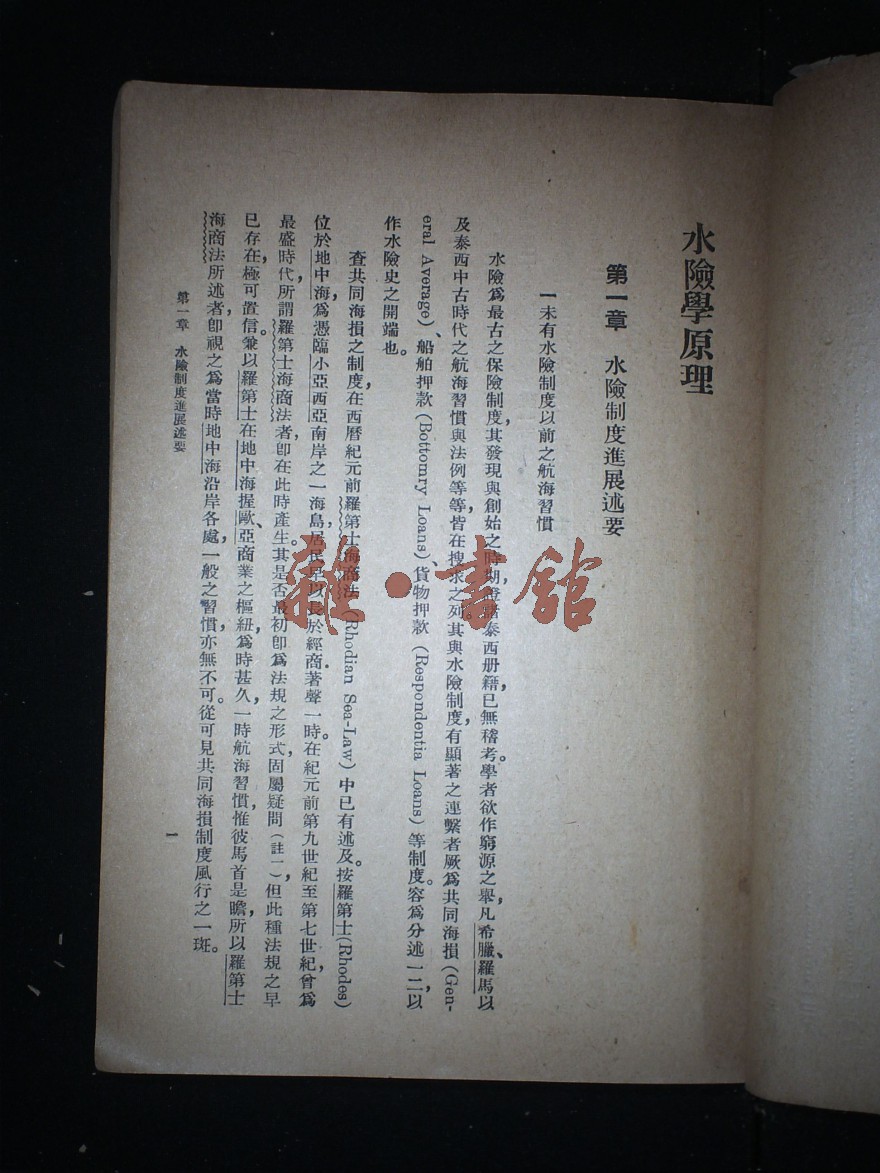 水險學原理
第一章　水險制度進展述要
一未有水險制度以前之航海習慣
水險爲最古之保險制度，其發現與創始之時期，證諸泰西册籍，已無稽考。學者欲作窮源之舉，凡希臘、羅馬以
及泰西中古時代之航海習慣與法例等等，皆在搜求之列。其與水險制度，有顯著之連繫者厥爲共同海損(Gen-
eral Average)、船舶押款(Bottomry Loans)、貨物押款(Respondentia Loans)等制度。容爲分述一二，以
作水險史之開端也。
查共同海損之制度，在西曆紀元前羅第士海商法(Rhodian Sea-Law)中已有述及。按羅第士(Rhodes)
位於地中海，爲憑臨小亞西亞南岸之一海島，居民早以長於經商著聲一時。在紀元前第九世紀至第七世紀，曾爲
最盛時代，所謂羅第士海商法者，卽在此時產生。其是否最初卽爲法規之形式，固屬疑問(註一)，但此種法規之早
已存在，極可置信。兼以羅第士在地中海握歐、亞商業之樞紐，爲時甚久，一時航海習慣，惟彼馬首是瞻，所以羅第士
海商法所述者，卽視之爲當時地中海沿岸各處，一般之習慣，亦無不可。從可見共同海損制度風行之一斑。
第一章　水險制度進展述要
一
雜·書館